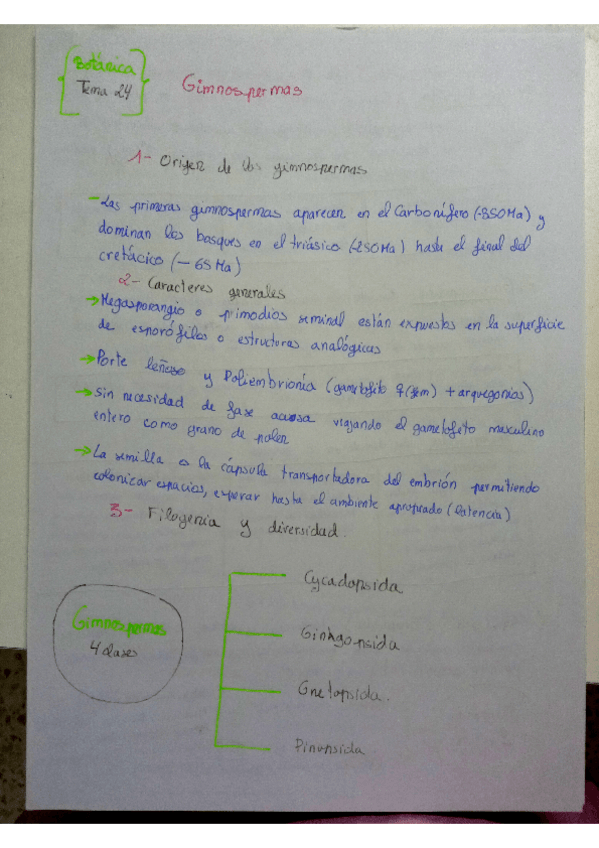 Botánica
Tema 24
Gimnospermas
1- Origen de las gimnospermas
- Las primeras gimnospermas aparecen en el Carbonífero (-350Ma) y
dominan los bosques en el triásico (-250Ma) hasta el final del
cretácico (-65Ma)
2- Caracteres generales
→ Megasporangio o primodios seminal están expuestos en la superficie
de esporófilos o estructuras analógicas
→ Porte leñoso y Poliembrionía (gametofito ♀(fem) + arquegonias)
→ Sin necesidad de fase acuosa viajando el gametofeto masculino
entero como grano de polen
→ La semilla o la cápsula transportadora del embrión permitiendo
colonizar espacios, esperar hasta el ambiente apropiado (latencia)
3- Filogenia y diversidad.
Gimnospermas
4 clases
Cycadopsida
Ginkgopsida
Gnetopsida.
Pinopsida